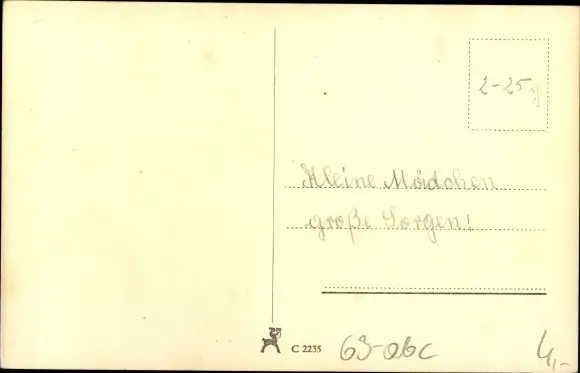 2-25
Kleine Mädchen
große Sorgen!
C 2235
63-abc
4,-